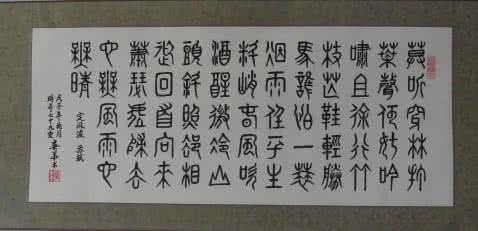 莫听穿林打
葉聲何妨吟
嘯且徐行竹
杖芒鞋輕勝
馬誰怕一蓑
烟雨任平生
料峭春風吹
酒醒微冷山
頭斜照卻相
迎回首向來
蕭瑟處歸去
也無風雨也
無晴
定風波 蘇軾
戊子年 月
時年七十九叟